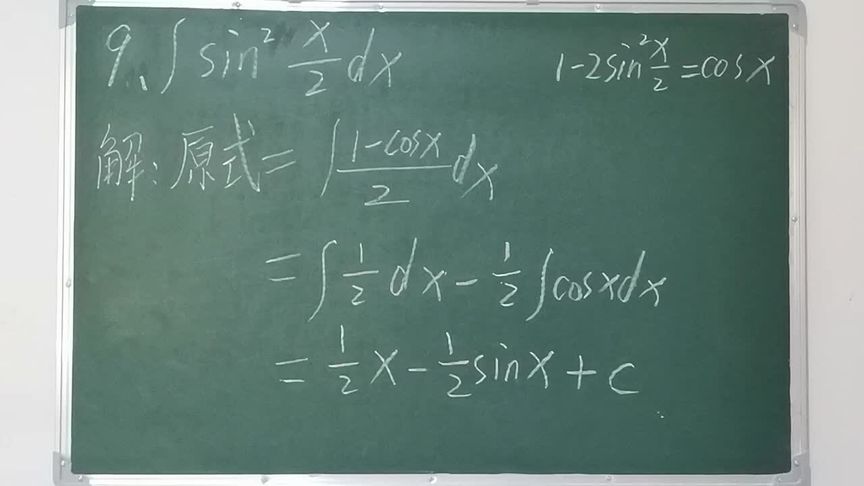 9、∫ sin² x/2 dx
1-2sin² x/2 = cosx
解: 原式 = ∫ (1-cosx)/2 dx
= ∫ 1/2 dx - 1/2 ∫ cosxdx
= 1/2 x - 1/2 sinx + c